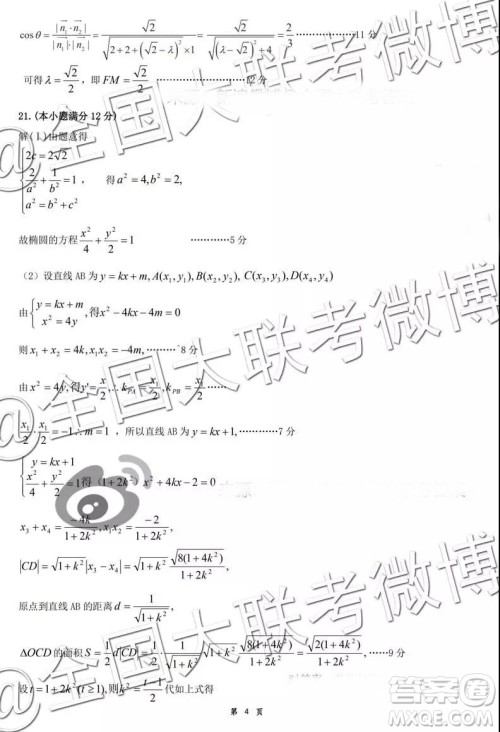 cosθ = |n₁·n₂| / (|n₁|·|n₂|) = √2 / √(2+2+(√2−λ)²×1) = √2 / √((λ−√2)²+4) = 2/3 …………11分
可得λ = √2/2，即 FM = √2/2 ……………12分
21.(本小题满分12分)
解(1)由题意得
{2c = 2√2
2/a² + 1/b² = 1， 得 a² = 4, b² = 2,
a² = b² + c²
故椭圆的方程 x²/4 + y²/2 = 1 …………5分
（2）设直线 AB 为 y = kx + m, A(x₁, y₁), B(x₂, y₂), C(x₃, y₃), D(x₄, y₄)
由{y = kx + m
x² = 4y ,得 x² − 4kx − 4m = 0
则 x₁ + x₂ = 4k, x₁ = −4m, ………8分
由 x² = 4y, 得y' = x/2, ∴ k_PA = x₁/2, k_PB =
x₁/2 · = −1 ∴ m = 1 ，所以直线 AB 为 y = kx + 1, …………7分
{y = kx + 1
x²/4 + y²/2 = 1 得（1 + 2k²）x² + 4kx − 2 = 0
x₃ + x₄ = −4k/(1 + 2k²), x₁x₂ = −2/(1 + 2k²),
|CD| = √(1 + k²) |x₃ − x₄| = √(1 + k²) √(8(1 + 4k²))/(1 + 2k²),
原点到直线 AB 的距离 d = 1/√(1 + k²),
ΔOCD 的面积 S = 1/2 d|CD| = 1/2 · 1/√(1 + k²) √(1 + k²) √(8(1 + 4k²))/(1 + 2k²) = √(2(1 + 4k²))/(1 + 2k²), ……9分
设 t = 1 + 2k²(t ≥ 1), 则k² = (t − 1)/2 代如上式得
第 4 页
@全国大联考微博
@全国大联考微博
@全国大联考微博
答案圈
MXQE.COM